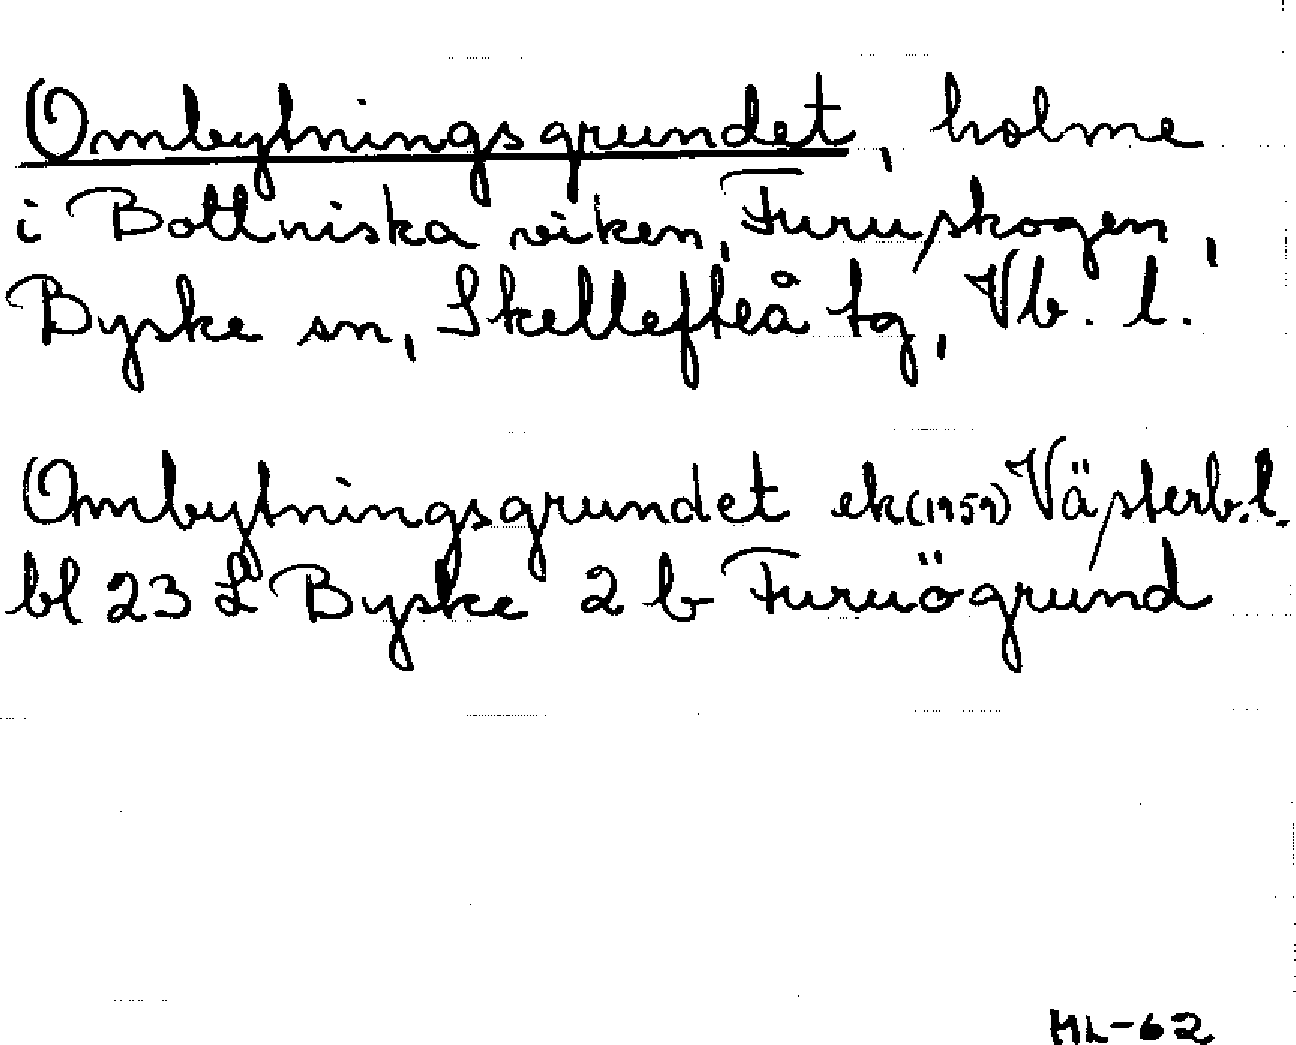 Ombytningsgrundet, holme
i Bottniska viken, Furuskogen,
Byske sn, Skellefteå tg, Vb. l.
Ombytningsgrundet ek (1959) Västerb. l.
bl 23 L Byske 2 b Furuögrund
ML-62